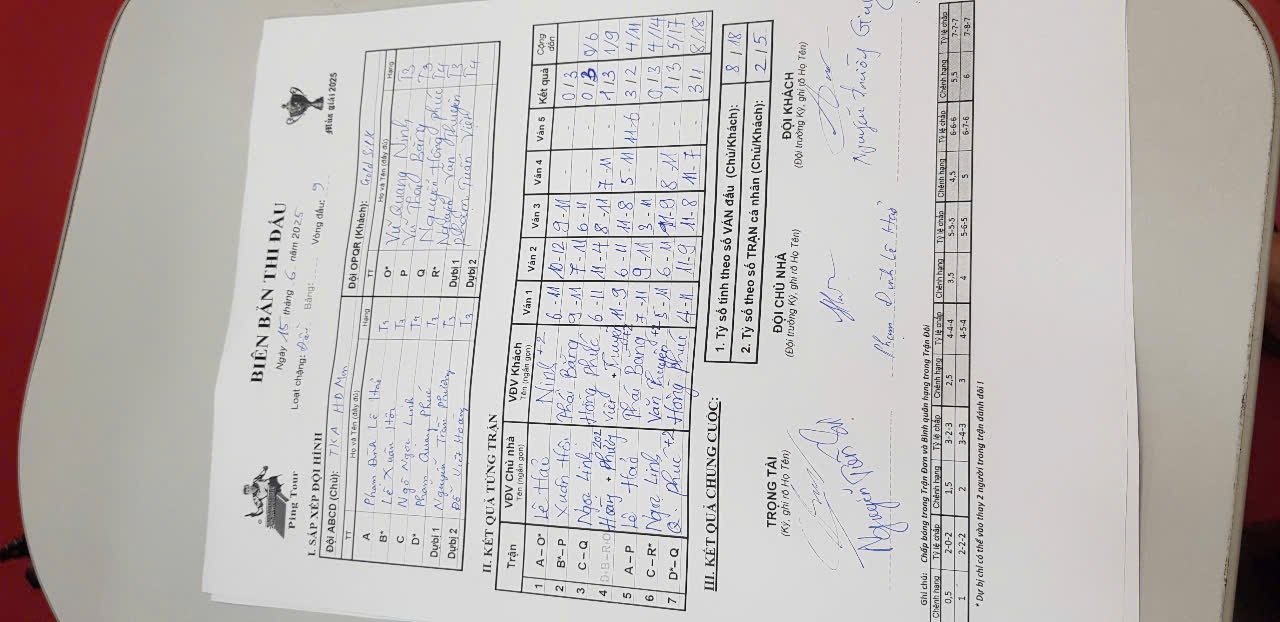 Ping Tour
BIÊN BẢN THI ĐẤU
Mùa giải 2025
Ngày 15 tháng 6 năm 2025
Loạt chặng: Đôi Bảng: Vòng đấu: 9
I. SẮP XẾP ĐỘI HÌNH
Đội ABCD (Chủ): TKA HD Mon Đội OPQR (Khách): Gold Silk
TT Họ và Tên (đầy đủ) Hạng TT Họ và Tên (đầy đủ) Hạng
A Phạm Đình Lê Hải T3 O* Vũ Quang Ninh T3
B* Lê Xuân Hội T3 P Vũ Phái Bằng T3
C Ngô Ngọc Linh T4 Q Nguyễn Hồng Phúc T4
D* Phạm Quang Phúc T3 R* Nguyễn Văn Thuyên T3
Dự bị 1 Nguyễn Trần Phương T3 Dự bị 1 Phạm Tuấn Việt T4
Dự bị 2 Đỗ Huy Hoàng T3 Dự bị 2
II. KẾT QUẢ TỪNG TRẬN
Trận VĐV Chủ nhà VĐV Khách Ván 1 Ván 2 Ván 3 Ván 4 Ván 5 Kết quả Cộng dồn
Tên (ngắn gọn) Tên (ngắn gọn)
1 A – O* Lê Hải Ninh +2 6-11 10-12 9-11 - - 0/3
2 B* – P Xuân Hội Phái Bằng 9-11 7-11 6-11 - - 0/3 0/6
3 C – Q Ngọc Linh Hồng Phúc 6-11 11-4 8-11 7-11 - 1/3 1/9
4 D-B–R-O Hoàng + Phương 202 Việt + Thuyên 11-9 6-11 11-8 5-11 11-6 3/2 4/11
5 A – P Lê Hải Phái Bằng +2 7-11 9-11 3-11 - - 0/3 4/14
6 C – R* Ngọc Linh Văn Thuyên +2 5-11 6-11 11-9 8-11 - 1/3 5/17
7 D* – Q Q. Phúc +2 Hồng Phúc 4-11 11-9 11-8 11-7 3/1 8/18
III. KẾT QUẢ CHUNG CUỘC:
1. Tỷ số tính theo số VÁN đấu (Chủ/Khách): 8/18
2. Tỷ số theo số TRẬN cá nhân (Chủ/Khách): 2/5
TRỌNG TÀI ĐỘI CHỦ NHÀ ĐỘI KHÁCH
(Ký, ghi rõ Họ Tên) (Đội trưởng Ký, ghi rõ Họ Tên) (Đội trưởng Ký, ghi rõ Họ Tên)
Phạm Đình Lê Hải Nguyễn Trường
Ghi chú: Chấp bóng trong Trận Đơn và Bình quân hạng trong Trận Đôi
Chênh hạng Tỷ lệ chấp Chênh hạng Tỷ lệ chấp Chênh hạng Tỷ lệ chấp Chênh hạng Tỷ lệ chấp Chênh hạng Tỷ lệ chấp Chênh hạng Tỷ lệ chấp
0,5 2-0-2 1,5 3-2-3 2,5 4-4-4 3,5 5-5-5 4,5 6-6-6 5,5 7-7-7
1 2-2-2 2 3-4-3 3 4-5-4 4 5-6-5 5 6-7-6 6 7-8-7
* Dự bị chỉ có thể vào thay 2 người trong trận đánh đôi !